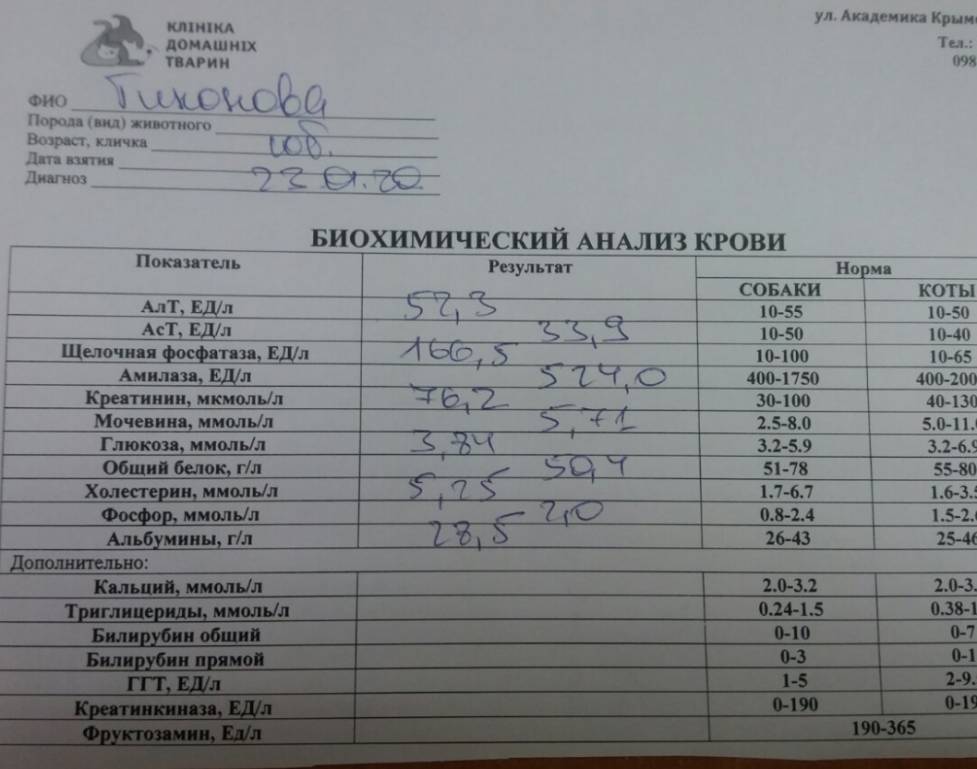 КЛІНІКА
ДОМАШНІХ
ТВАРИН
ул. Академика Крым
Тел.:
098
ФИО Тихонова
Порода (вид) животного
Возраст, кличка соб.
Дата взятия
Диагноз 23.01.20
БИОХИМИЧЕСКИЙ АНАЛИЗ КРОВИ
Показатель Результат Норма
СОБАКИ КОТЫ
АлТ, ЕД/л 52,3 10-55 10-50
АсТ, ЕД/л 33,9 10-50 10-40
Щелочная фосфатаза, ЕД/л 166,5 10-100 10-65
Амилаза, ЕД/л 524,0 400-1750 400-200
Креатинин, мкмоль/л 76,2 30-100 40-130
Мочевина, ммоль/л 5,71 2.5-8.0 5.0-11.
Глюкоза, ммоль/л 3,84 3.2-5.9 3.2-6.9
Общий белок, г/л 50,4 51-78 55-80
Холестерин, ммоль/л 5,25 1.7-6.7 1.6-3.
Фосфор, ммоль/л 2,0 0.8-2.4 1.5-2.
Альбумины, г/л 28,5 26-43 25-46
Дополнительно:
Кальций, ммоль/л 2.0-3.2 2.0-3.
Триглицериды, ммоль/л 0.24-1.5 0.38-1
Билирубин общий 0-10 0-7
Билирубин прямой 0-3 0-1
ГГТ, ЕД/л 1-5 2-9.
Креатинкиназа, ЕД/л 0-190 0-19
Фруктозамин, Ед/л 190-365